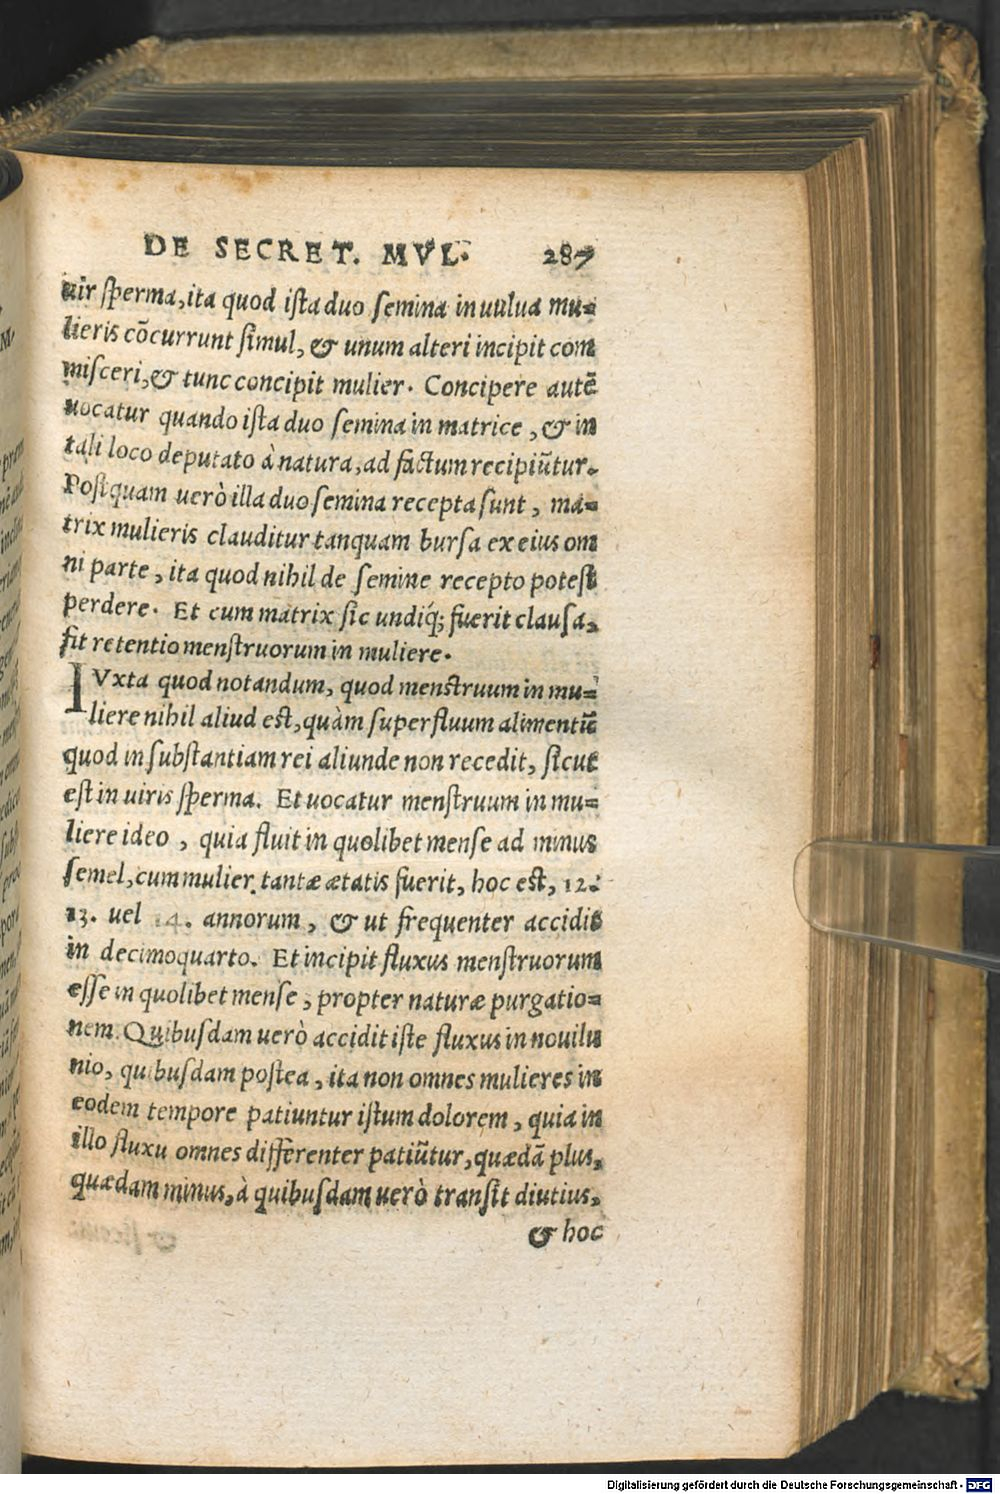 DE SECRET. MVL. 287
uir sperma, ita quod ista duo semina in uulua mu=
lieris cõcurrunt simul, & unum alteri incipit com
misceri, & tunc concipit mulier. Concipere autẽ
uocatur quando ista duo semina in matrice, & in
tali loco deputato à natura, ad factum recipiũtur.
Postquam uerò illa duo semina recepta sunt, ma=
trix mulieris clauditur tanquam bursa ex eius om
ni parte, ita quod nihil de semine recepto potest
perdere. Et cum matrix sic undiq; fuerit clausa,
fit retentio menstruorum in muliere.
IVxta quod notandum, quod menstruum in mu=
liere nihil aliud est, quàm superfluum alimentũ
quod in substantiam rei aliunde non recedit, sicut
est in uiris sperma. Et uocatur menstruum in mu=
liere ideo, quia fluit in quolibet mense ad minus
semel, cum mulier tantæ ætatis fuerit, hoc est, 12.
13. uel 14. annorum, & ut frequenter accidit
in decimoquarto. Et incipit fluxus menstruorum
esse in quolibet mense, propter naturæ purgatio=
nem. Quibusdam uerò accidit iste fluxus in nouilu
nio, quibusdam postea, ita non omnes mulieres in
eodem tempore patiuntur istum dolorem, quia in
illo fluxu omnes differenter patiũtur, quædã plus,
quædam minus, à quibusdam uerò transit diutius,
& hoc
Digitalisierung gefördert durch die Deutsche Forschungsgemeinschaft - DFG